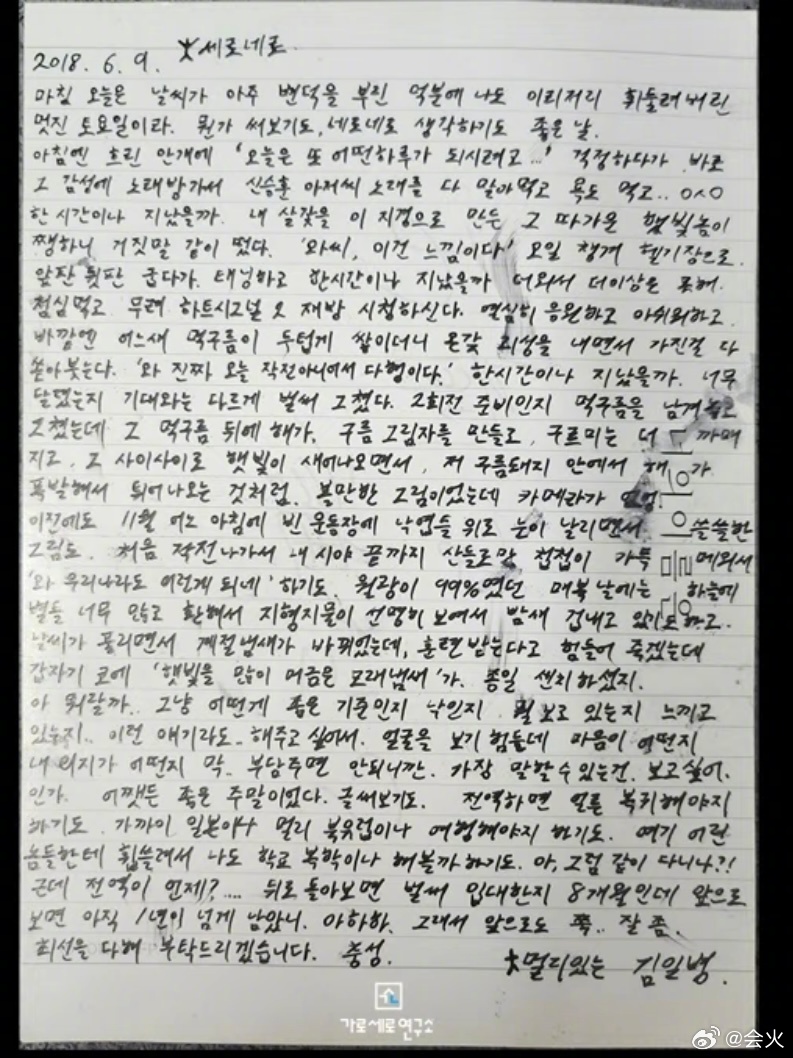 2018. 6. 9. 세로네로
마침 오늘은 날씨가 아주 변덕을 부린 덕분에 나도 이리저리 휘둘려버린
멋진 토요일이라. 뭔가 써보기도, 네로네로 생각하기도 좋은 날.
아침엔 흐린 안개에 '오늘은 또 어떤하루가 되시려고...' 걱정하다가 바로
그 감성에 노래방가서 신승훈 아저씨 노래를 다 말아먹고 욕도 먹고.. ㅇㅅㅇ
한시간이나 지났을까. 내 살갗을 이 지경으로 만든 그 따가운 햇빛놈이
쨍하니 거짓말 같이 떴다. '와씨, 이건 느낌이다' 오일 챙겨 헬기장으로.
앞판 뒷판 굽다가. 태닝하고 한시간이나 지났을까 더워서 더이상은 못해.
점심먹고 무려 하트시그널 2 재방 시청하신다. 열심히 응원하고 아쉬워하고.
바깥엔 어느새 먹구름이 두텁게 쌓이더니 온갖 괴성을 내면서 가진걸 다
쏟아붓는다. '와 진짜 오늘 작전아니여서 다행이다.' 한시간이나 지났을까. 너무
달랬는지 기대와는 다르게 벌써 그쳤다. 2회전 준비인지 먹구름을 남겨놓고
그쳤는데 그 먹구름 뒤에 해가. 구름 그림자를 만들고, 구르미는 더 까매
지고, 그 사이사이로 햇빛이 새어나오면서, 저 구름돼지 안에서 해가
폭발해서 튀어나오는 것처럼. 볼만한 그림이었는데 카메라가 없엉
이전에도 11월 어느 아침에 빈 운동장에 낙엽들 위로 눈이 날리면서 쓸쓸한
그림도. 처음 작전나가서 내 시야 끝까지 산들로만 첩첩이 가득 메워서
'와 우리나라도 이런게 되네' 하기도. 월광이 99%였던 매복 날에는 하늘에
별들 너무 많고 환해서 지형지물이 선명히 보여서 밤새 겁내고 있기도하고.
날씨가 풀리면서 계절냄새가 바뀌었는데, 훈련받는다고 힘들어 죽겠는데
갑자기 코에 '햇빛을 많이 머금은 모래냄새'가. 종일 센치하셨지.
아 뭐랄까. 그냥 어떤게 좋은 기준인지 낙인지 뭘 보고 있는지 느끼고
있는지.. 이런 얘기라도.. 해주고싶어서. 얼굴을 보기 힘든데 마음이 어떤지
내 의지가 어떤지 막.. 부담주면 안되니깐. 가장 말할수있는건. 보고싶어.
인가. 어쨋든 좋은 주말이었다. 글써보기도. 전역하면 얼른 복귀해야지
하기도. 가까이 일본이나 멀리 북유럽이나 여행해야지 하기도. 여기 어린
놈들한테 휩쓸려서 나도 학교 복학이나 해볼까하기도. 아, 그럼 같이 다니나?!
근데 전역이 언제?.... 뒤로 돌아보면 벌써 입대한지 8개월인데 앞으로
보면 아직 1년이 넘게 남았니. 아하하. 그래서 앞으로도 쭉.. 잘 좀.
최선을 다해 부탁드리겠습니다. 충성.
멀리있는 김일병.
가로세로연구소
@会火